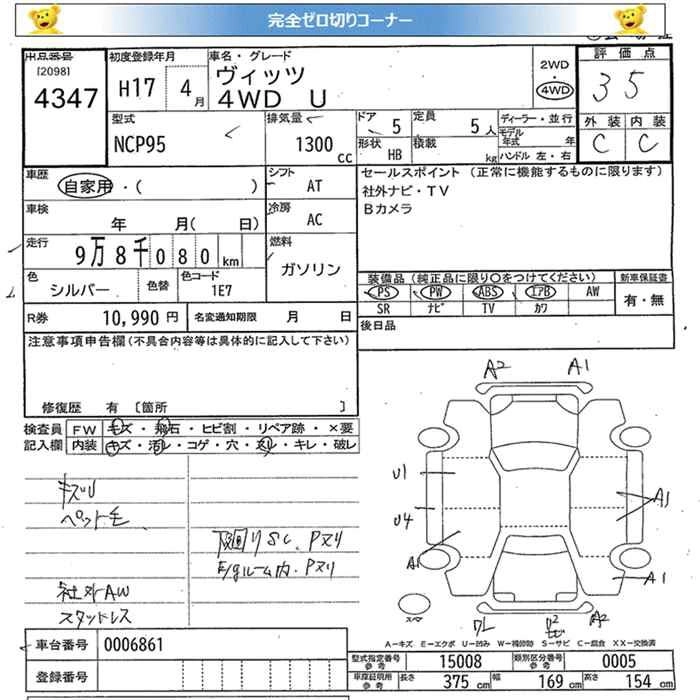 完全ゼロ切りコーナー
出品番号 初度登録年月 車名・グレード 評価点
[2098] ヴィッツ 2WD
4347 H17 4月 4WD U 4WD 3 5
型式 排気量 ドア 定員 ディーラー・並行 外装 内装
NCP95 1300cc 5 5人 モデル年式 年 C C
形状 HB 積載 kg ハンドル 左・右
車歴 シフト セールスポイント (正常に機能するものに限ります)
自家用・( ) AT 社外ナビ・TV
車検 冷房 Bカメラ
年 月( 日) AC
走行 燃料
9万8千080km ガソリン
色 色替 色コード 装備品(純正品に限り〇をつけてください) 新車保証書
シルバー 1E7 PS PW ABS エアB AW 有・無
R券 10,990円 名変通知期限 月 日 SR ナビ TV カワ
後日品
注意事項申告欄(不具合内容等は具体的に記入して下さい)
修復歴 有 〔箇所 〕
検査員 FW キズ・飛石・ヒビ割・リペア跡・×要
記入欄 内装 キズ・汚レ・コゲ・穴・スレ・キレ・破レ
A2 A1
U1
U4 A1
A1
A1
キズU
ペット毛
下回りSC、Pヌリ
E/gルーム内、Pヌリ
社外AW
スタッドレス
スペア
U2 A2
A−キズ E−エクボ U−凹み W−補修跡 S−サビ C−腐食 XX−交換済
車台番号 0006861
型式指定番号 参考 15008 類別区分番号 参考 0005
登録番号
車庫証明用 参考 長さ 375cm 幅 169cm 高さ 154cm